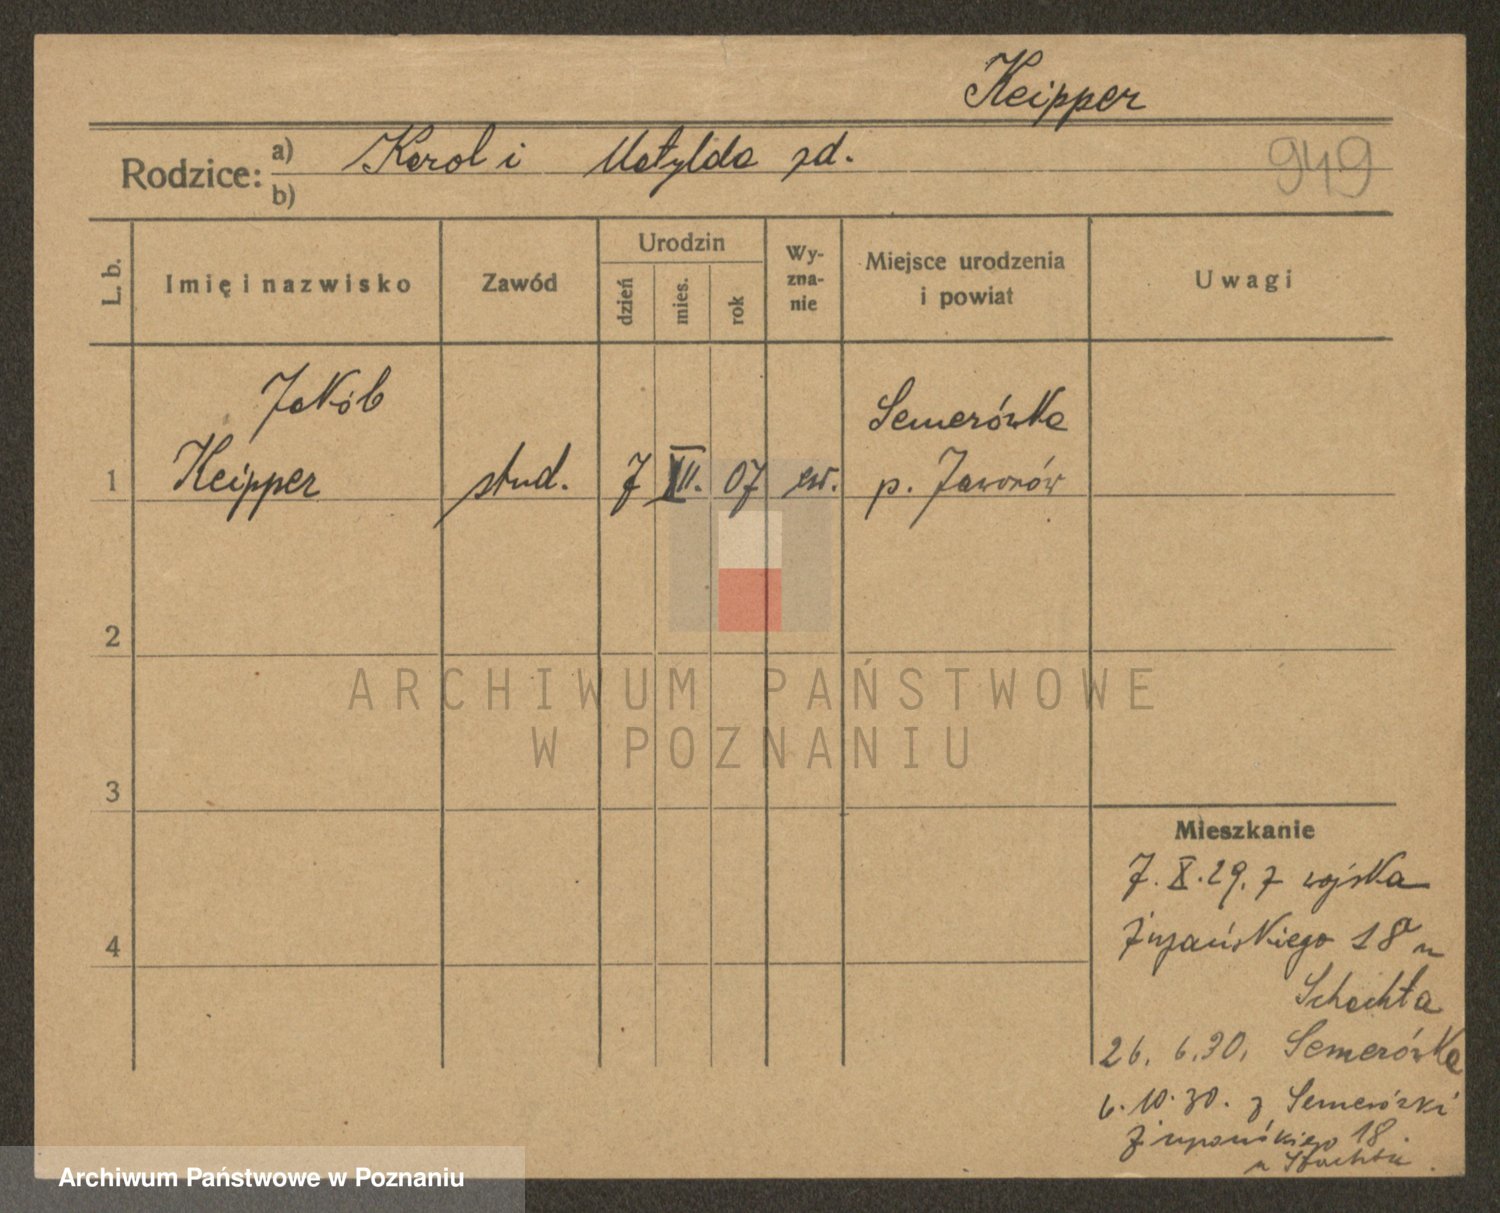 Keipper
Rodzice: a) Karol i Matylda zd.
b)
949
L. b.
Imię i nazwisko
Zawód
Urodzin
dzień
mies.
rok
Wy-
zna-
nie
Miejsce urodzenia
i powiat
Uwagi
Jakób
Semerówka
1 Keipper stud. 7 07 ew. p. Jaworów
2
3
4
Mieszkanie
7. X. 29. z wojska
Żupańskiego 18a u
Schachta
26. 6.30. Semerówka
6. 10. 30. z Semerówki
Żupańskiego 18
u
ARCHIWUM PAŃSTWOWE
W POZNANIU
Archiwum Państwowe w Poznaniu